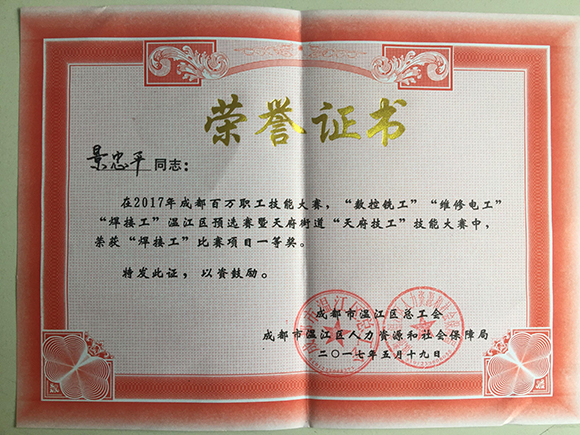 荣誉证书
景忠平 同志：
在2017年成都百万职工技能大赛，“数控铣工”“维修电工”
“焊接工”温江区预选赛暨天府街道“天府技工”技能大赛中，
荣获“焊接工”比赛项目一等奖。
特发此证，以资鼓励。
成都市温江区总工会
成都市温江区人力资源和社会保障局
二〇一七年五月十九日